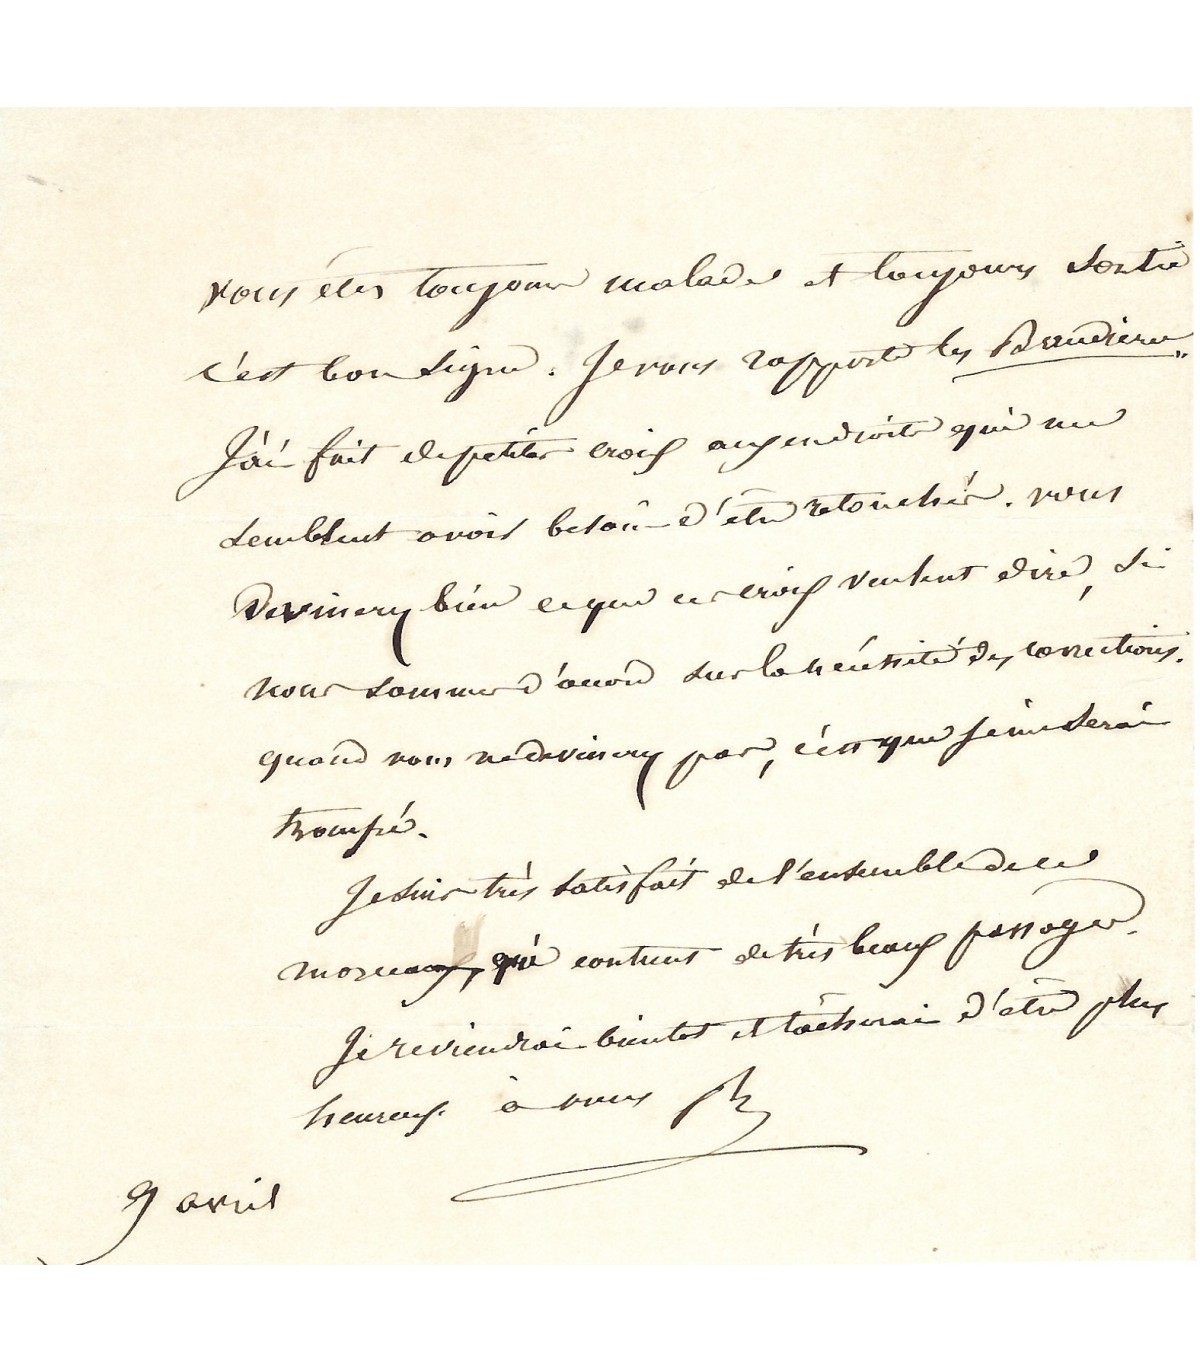 vous êtes toujours malade et toujours sortie
c'est bon signe. Je vous rapporte les
J'ai fait de petites croix aux endroits qui me
semblent avoir besoin d'être retouchés. vous
devinerez bien ce que ces croix veulent dire, si
nous sommes d'accord sur la nécessité des corrections.
quand vous ne devinerez pas, c'est que je me serai
trompé.
Je suis très satisfait de l'ensemble de ce
morceau, qui contient de très beaux passages.
Je reviendrai bientot et tâcherai d'être plus
heureux. à vous
9 avril